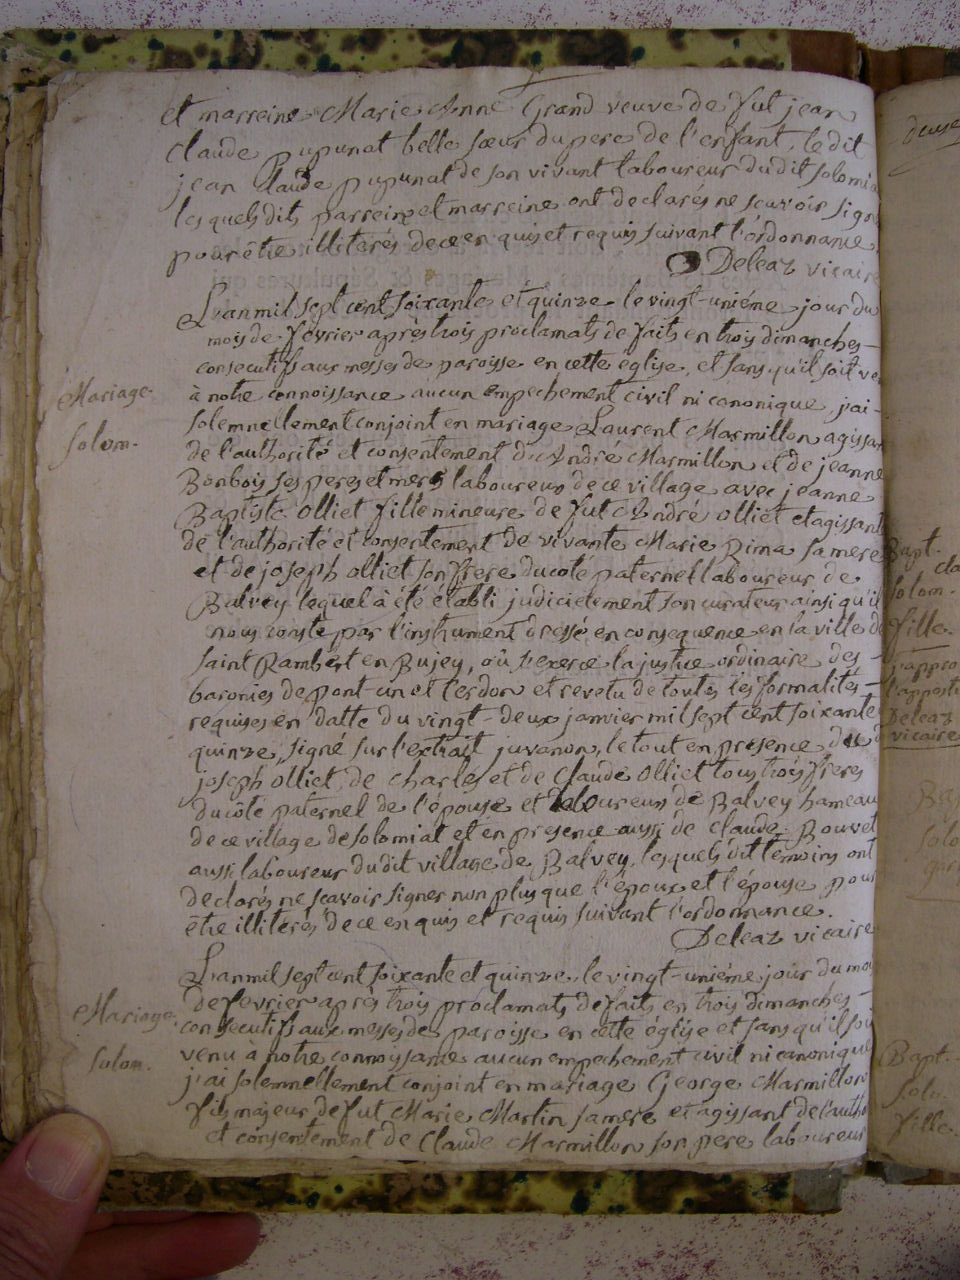 et marreine Marie Anne Grand veuve de fut jean
Claude pupunat belle sœur du pere de l'enfant, le dit
jean Claude pupunat de son vivant laboureur du dit solomia
lesquels dits parreine et marreine ont declarés ne scavoir sign
pour être illiterés de ce enquis et requis suivant l'ordonnance.
Deleaz vicaire
L'an mil sept cent soixante et quinze le vingt-uniéme jour du
mois de fevrier après trois proclamats de faits en trois dimanches
consecutifs aux messes de paroisse en cette église, et sans qu'il soit ve
Mariage
à notre connoissance aucun empechement civil ni canonique, j'ai
solemnellement conjoint en mariage Laurent Marmillon agissan
Solom.
de l'authorité et consentement d'André Marmillon et de jeanne
Bonbois ses peres et mere laboureur de ce village avec jeanne
Baptiste Olliet fille mineure de fut André Olliet et agissant
de l'authorité et consentement de vivante Marie pima sa mere
et de joseph Olliet son frere du coté paternel laboureur de
Balvey lequel à été établi judicielement son curateur ainsi qu'il
nous conste par l'instrument dressé en consequence en la ville de
saint Rambert en Bujey, où s'exerce la justice ordinaire des
baronies de pont-un et Cerdon et revetu de toutes les formalités
requises en datte du vingt-deux janvier mil sept cent soixante
quinze, signé sur l'extrait juvanon, le tout en presence du d
joseph Olliet, de Charles et de Claude Olliet tous trois freres
du côté paternel de l'épouse et laboureurs de Balvey hameau
de ce village de solomiat et en presence aussi de Claude Bouvet
aussi laboureur dudit village de Balvey, lesquels dit temoins ont
declarés ne scavoir signer non plus que l'époux et l'épouse pour
être illiterés de ce enquis et requis suivant l'ordonnance.
Deleaz vicaire
L'an mil sept cent soixante et quinze, le vingt-uniéme jour du moi
de fevrier après trois proclamats de faits en trois dimanches
Mariage
consecutifs aux messes de paroisse en cette église et sans qu'il soi
Solom.
venu à notre connoyssance aucun empechement civil ni canonique
j'ai solemnellement conjoint en mariage George Marmillon
fils majeur de fut Marie Martin sa mere et agissant de l'autho
et consentement de Claude Marmillon son pere laboureur
Bapt.
solom.
fille.
Deleaz
vicaire
Bapt.
Solo.
fille.